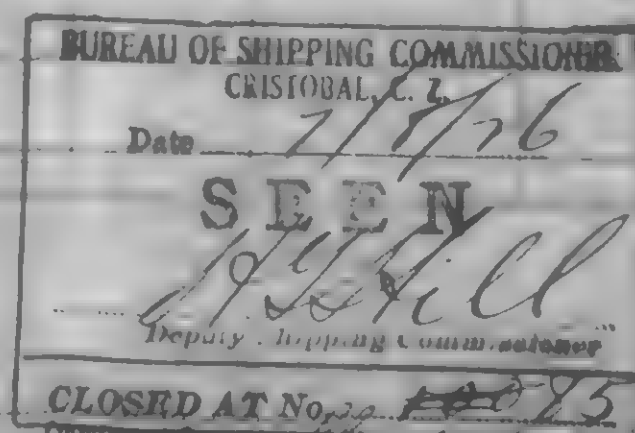 BUREAU OF SHIPPING COMMISSIONER
CRISTOBAL, C. Z.
Date 7/8/26
SEEN
Deputy Shipping Commissioner
CLOSED AT No. 85